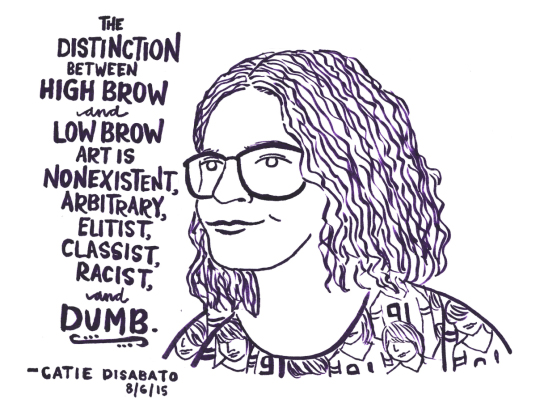 THE
DISTINCTION
BETWEEN
HIGH BROW
and
LOW BROW
ART IS
NONEXISTENT,
ARBITRARY,
ELITIST,
CLASSIST,
RACIST,
and
DUMB.
—CATIE DISABATO
8/6/15
91
91